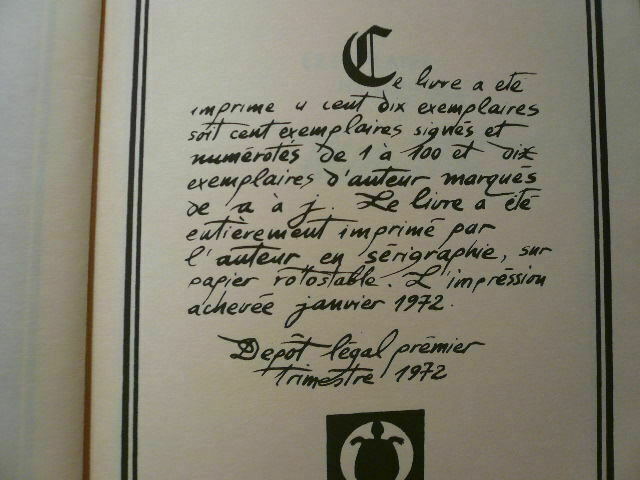 Ce livre a été
imprime a cent dix exemplaires
soit cent exemplaires signés et
numérotés de 1 à 100 et dix
exemplaires d'auteur marqués
de a à j. Le livre a été
entièrement imprimé par
l'auteur en sérigraphie, sur
papier rotostable. L'impréssion
achevée janvier 1972.
Depôt légal prémier
trimestre 1972